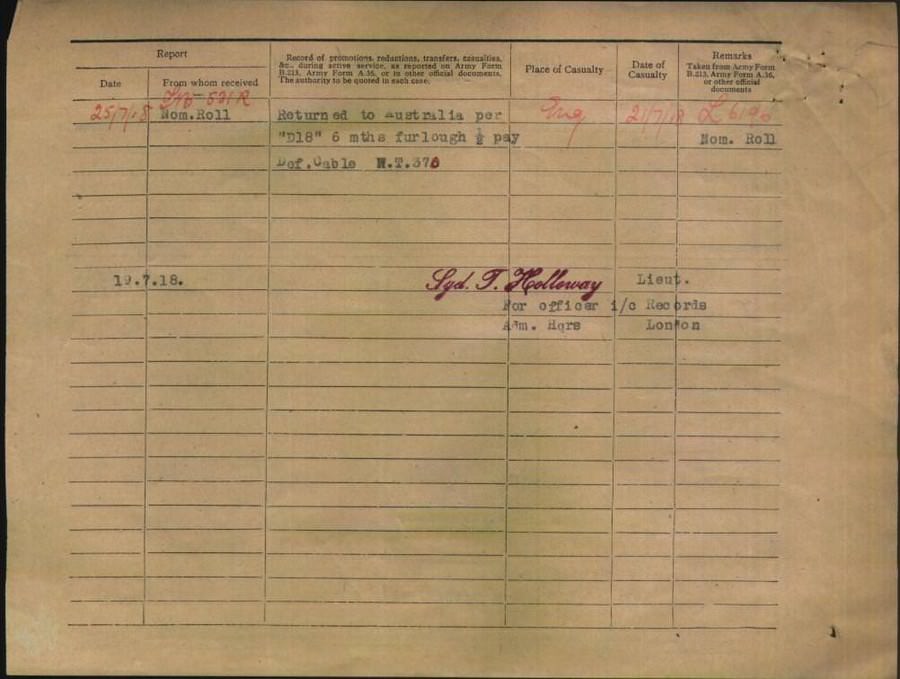 Report
Record of promotions, reductions, transfers, casualties,
&c., during active service, as reported on Army Form
B.213, Army Form A.36, or in other official documents.
The authority to be quoted in each case.
Place of Casualty
Date of
Casualty
Remarks
Taken from Army Form
B.213, Army Form A.36,
or other official
documents
Date
From whom received
531R
25/7/18 Nom.Roll Returned to Australia per Eng 21/7/18
"D18" 6 mths furlough ½ pay Nom. Roll
Def.Cable W.T.376
19.7.18. Sgd. T. Holloway Lieut.
For officer i/c Records
Adm. Hqrs London